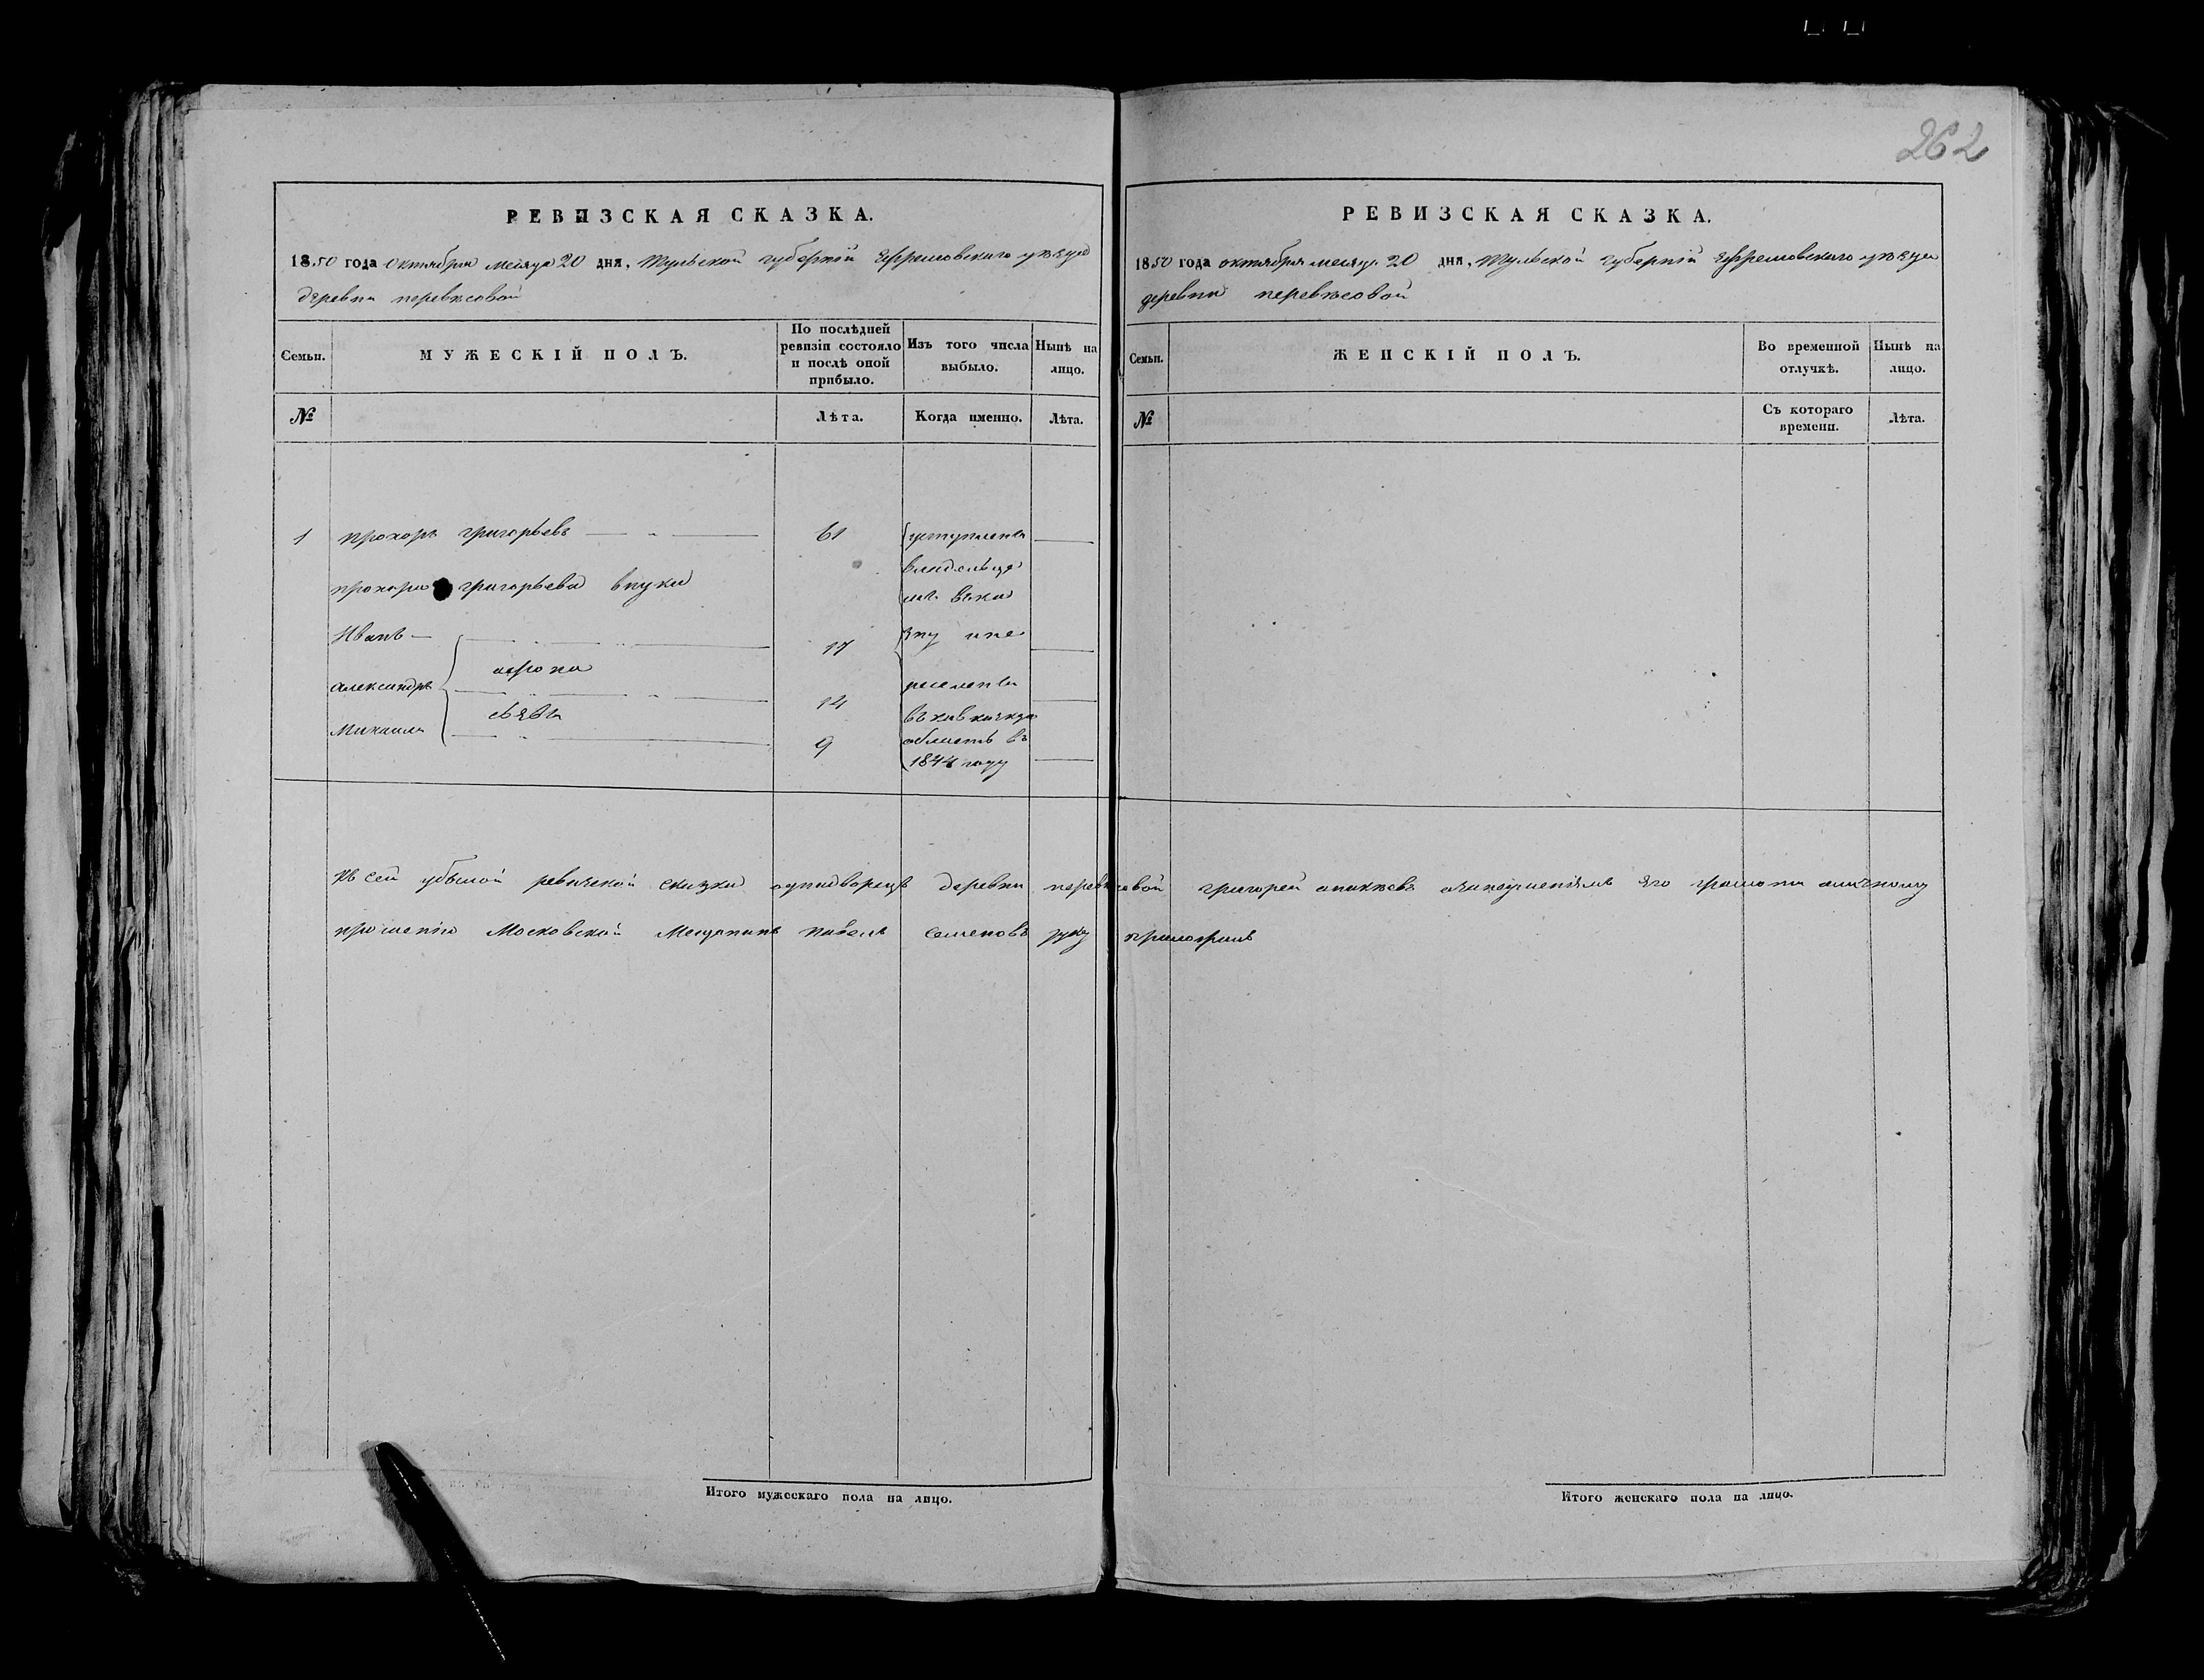 262
РЕВИЗСКАЯ СКАЗКА.
1850 года октября месяца 20 дня, Тульской губернiй Ефремовского уѣзда
деревни перевѣсовой
Семьи. МУЖЕСКІЙ ПОЛЪ. По послѣдней ревизіи состояло и послѣ оной прибыло. Изъ того числа выбыло. Нынѣ на лицо.
№ Лѣта. Когда именно. Лѣта.
1 прохоръ григорьевъ 61 уступленъ
владельце
прохора григорьева внуки
мъ въка
Иванъ 17 зну ипе
афона
александръ 14 реселенъ
Михаилъ 9 область въ
1844 году
Къ сей убылой ревиской скаски аднодворецъ деревни перевѣсовой григорей его грамоти личному
прошенію Московской Мещанинъ павелъ Семеновъ руку приложилъ
Итого мужескаго пола на лицо.
РЕВИЗСКАЯ СКАЗКА.
1850 года октября месяца 20 дня, Тульской губернiй Ефремовского уѣзда
деревни перевѣсовой
Семьи. ЖЕНСКІЙ ПОЛЪ. Во временной отлучкѣ. Нынѣ на лицо.
№ Съ котораго времени. Лѣта.
Итого женскаго пола на лицо.